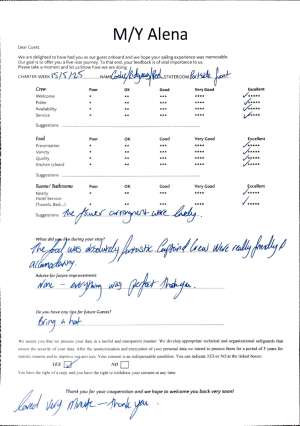 M/Y Alena
Dear Guest,
We are delighted to have had you as our guest onboard and we hope your sailing experience was memorable.
Our goal is to offer you a five-star journey. To that end, your feedback is of vital importance to us.
Please take a moment and let us know how we are doing.
CHARTER WEEK 15/5/25 NAME STATEROOM Portside front
Crew Poor OK Good Very Good Excellent
Welcome * ** *** **** *****
Polite * ** *** **** *****
Availability * ** *** **** *****
Service * ** *** **** *****
Suggestions
Food Poor OK Good Very Good Excellent
Presentation * ** *** **** *****
Variety * ** *** **** *****
Quality * ** *** **** *****
Kitchen Island * ** *** **** *****
Suggestions
Rooms/ Bathrooms Poor OK Good Very Good Excellent
Vanity * ** *** **** *****
Hotel Service * ** *** **** *****
(Towels, Bed...) * ** *** **** *****
Suggestions The flower arrangment were lovely.
What did you like during your stay?
The food was absolutely fantastic Captain & Crew were really friendly &
accomodating.
Advice for future improvement
None - everything was perfect thank you.
Do you have any tips for future Guests?
Bring a hat
We assure you that we process your data in a lawful and transparent manner. We develop appropriate technical and organizational safeguards that
ensure the security of your data. After the anonymization and encryption of your personal data we intend to process them for a period of 5 years for
statistic reasons and to improve our services. Your consent is an indispensable condition. You can indicate YES or NO in the linked boxes:
YES NO
You have the right of a copy, and you have the right to withdraw your consent at any time.
Thank you for your cooperation and we hope to welcome you back very soon!
Loved every minute - thank you